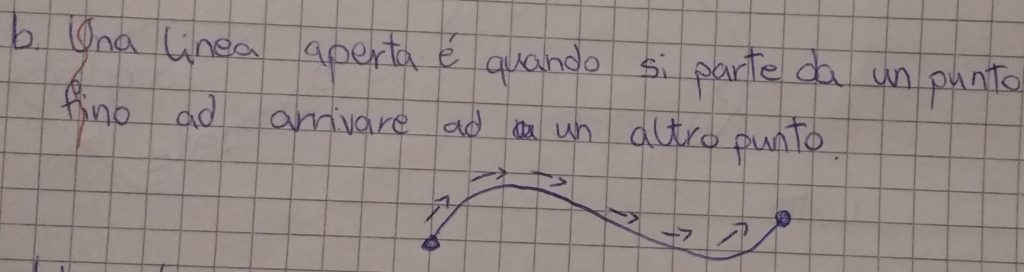 b. Una linea aperta é quando si parte da un punto
fino ad arrivare ad un altro punto.